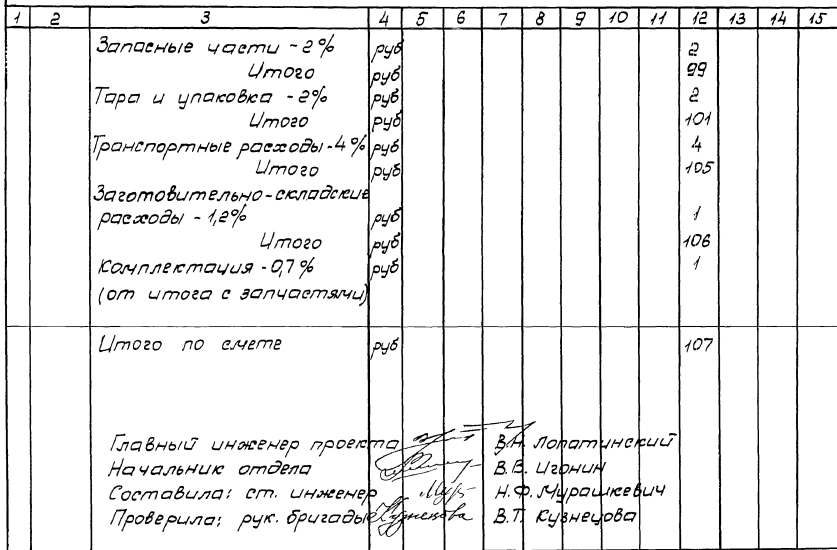 1 2 3 4 5 6 7 8 9 10 11 12 13 14 15
Запасные части - 2% руб 2
Итого руб 99
Тара и упаковка - 2% руб 2
Итого руб 101
Транспортные расходы - 4% руб 4
Итого руб 105
Заготовительно-складские
расходы - 1,2% руб 1
Итого руб 106
Комплектация - 0,7% руб 1
(от итога с запчастями)
Итого по смете руб 107
Главный инженер проекта В.Н. Лопатинский
Начальник отдела В.В. Игонин
Составила: ст. инженер Мур Н.Ф. Мурашкевич
Проверила: рук. бригады Кузнецова В.Т. Кузнецова